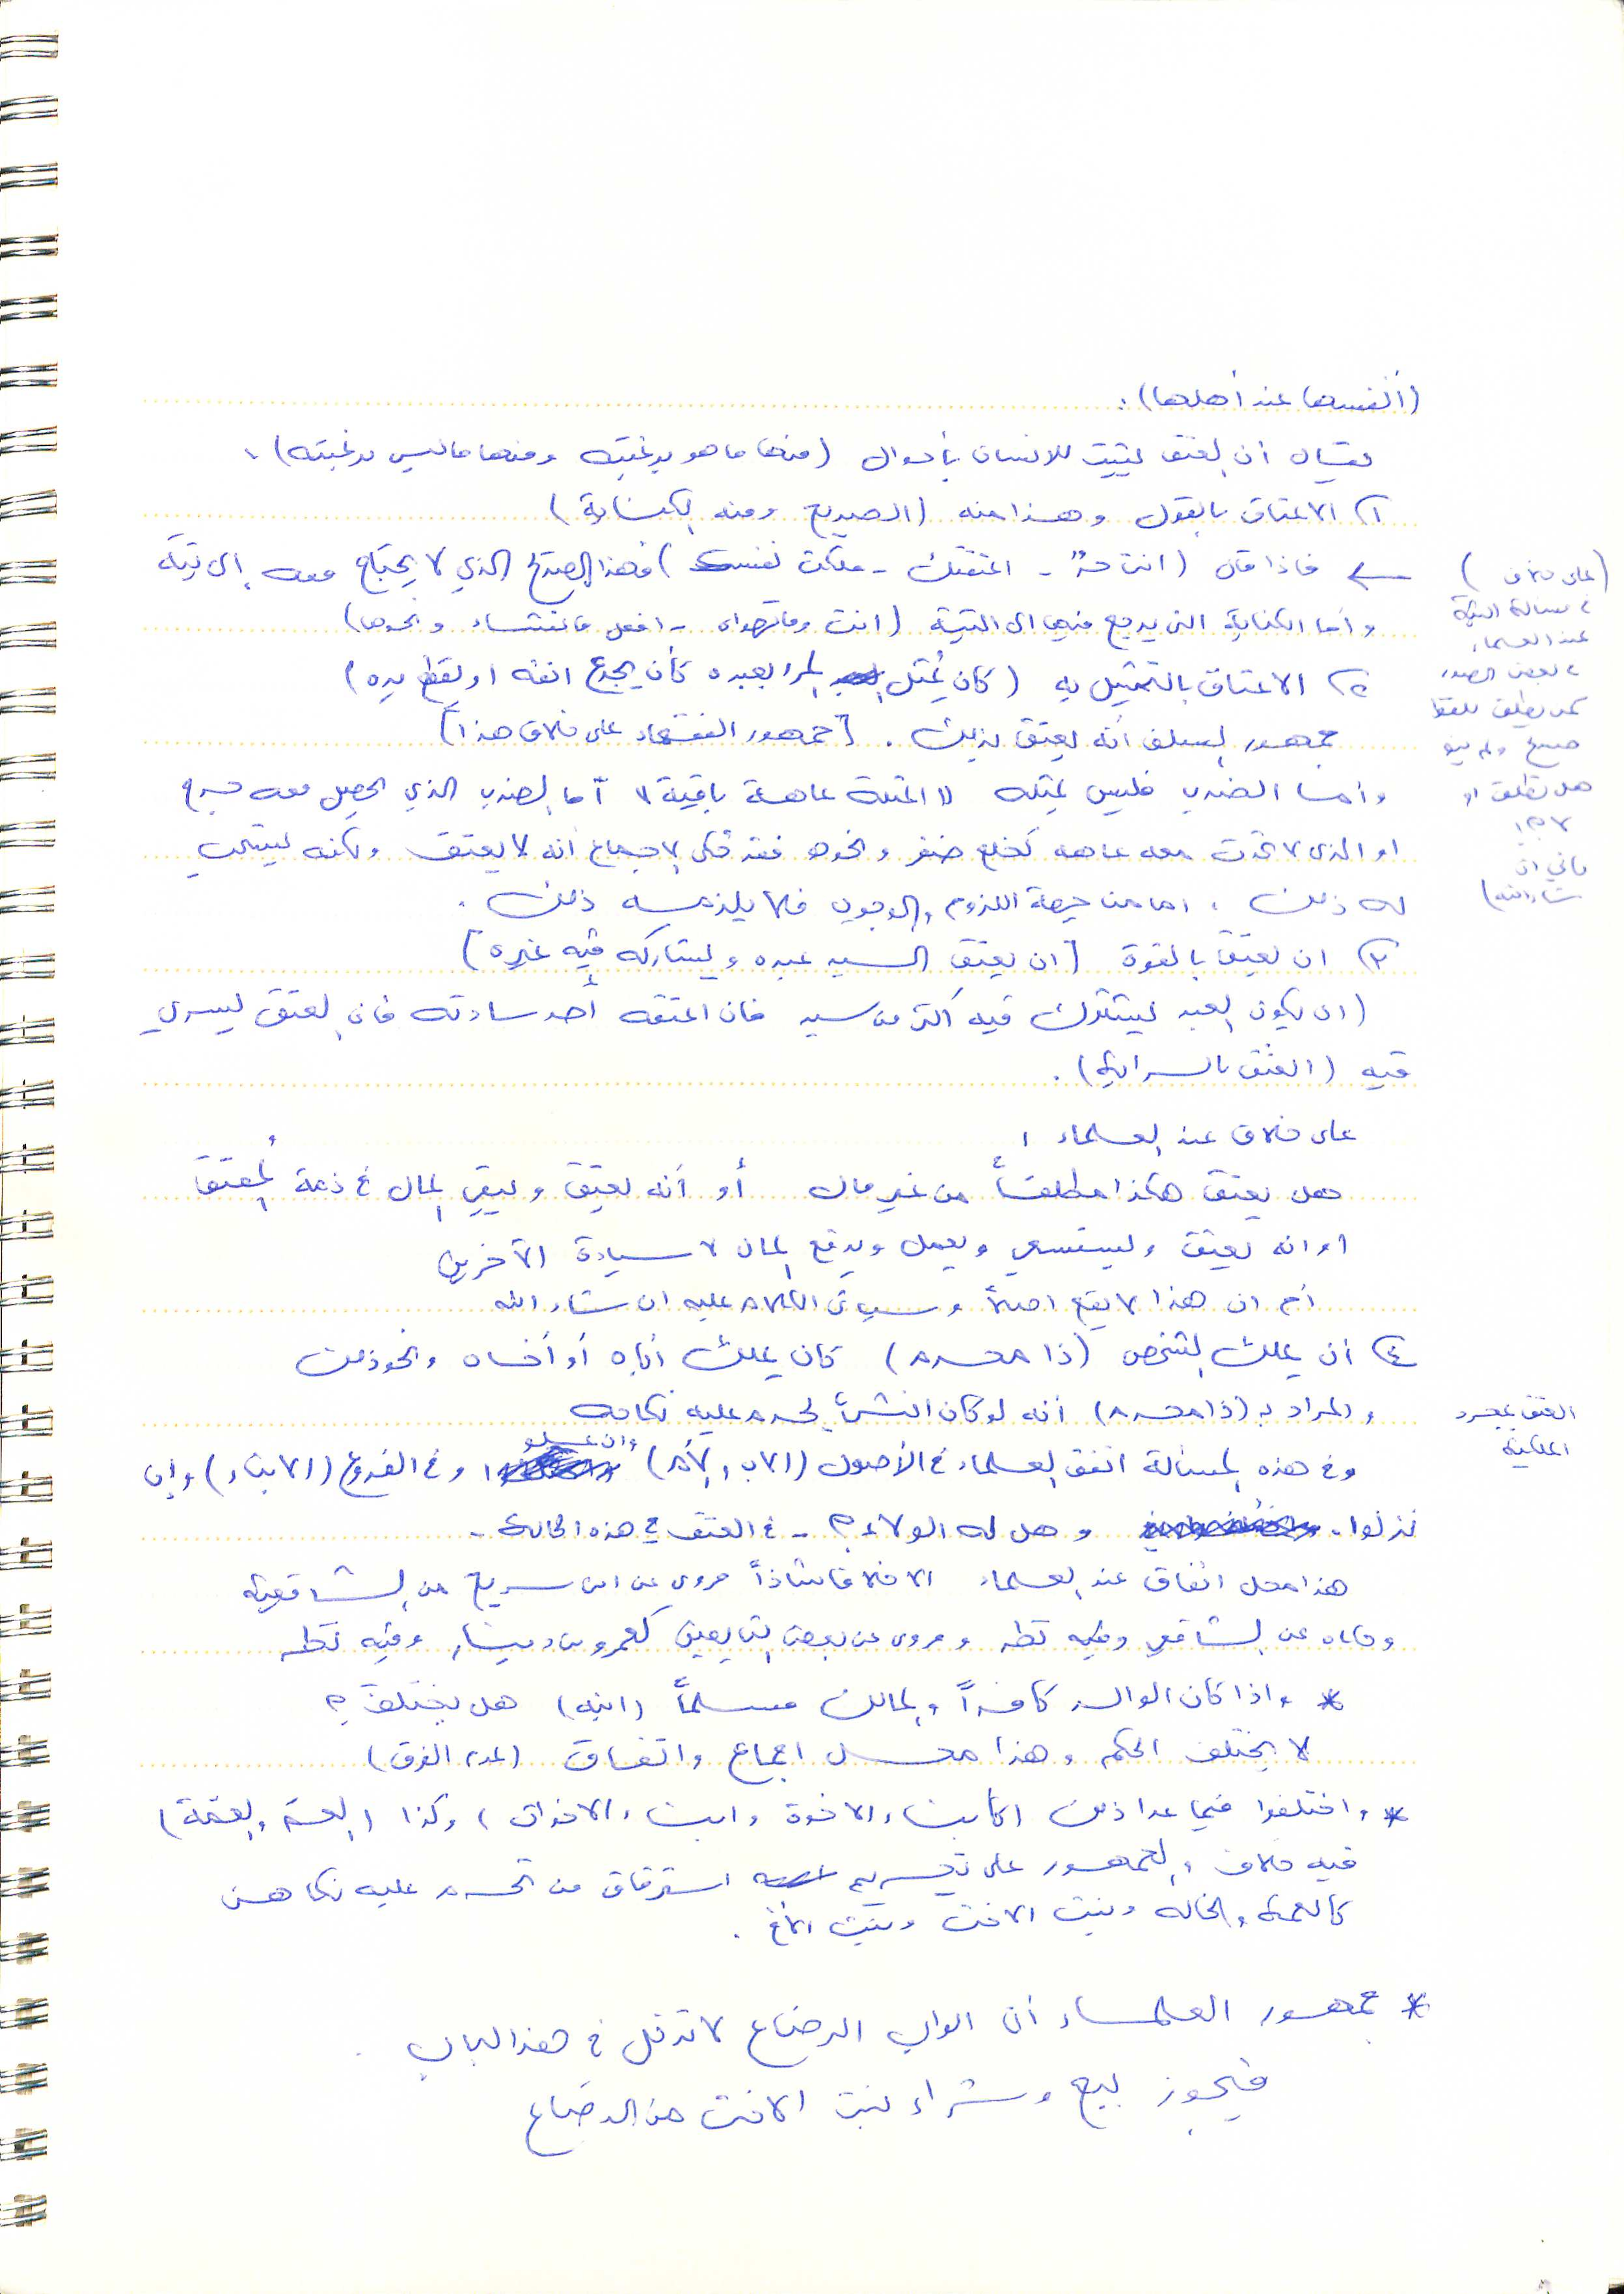 (أنفسها عند أهلها) :
يقال أن العتق يثبت للانسان بأحوال (منها ما هو برغبته ومنها ما ليس برغبته) ،
١) الاعتاق بالقول وهذا منه (الصريح ومنه الكناية)
← فاذا قال (انت حرٌ - اعتقتك - ملكت نفسك) فهذا الصريح الذي لا يحتاج معه إلى نية
وأما الكناية التي يرجع فيها الى النية (انت وما تهواه - افعل ما تشاء ونحوها)
(على خلاف
في مسألة النية
عند العلماء
في بعض الصور
كمن يطلق لفظا
صريح ولم ينو
هل تطلق او
لا ؟
يأتي ان
شاء الله)
٢) الاعتاق بالتمثيل به (كان يُمثل المرء بعبده كأن يجدع انفه او يقطع يده)
جمهور السلف أنه يعتق بذلك . [جمهور الفقهاء على خلاف هذا]
وأما الضرب فليس بمثله لا المثلة عاهة باقية لا أما الضرب الذي يحصل معه جرح
او الذي لا تحدث معه عاهه كخلع ضفر ونحوه فقد حكى الاجماع أنه لا يعتق ولكنه يستحب
له ذلك ، اما من جهة اللزوم والوجوب فلا يلزمه ذلك .
٣) ان يعتق بالقوة [ان يعتق السيد عبده ويشاركه فيه غيره]
(ان يكون العبد يشترك فيه أكثر من سيد فان اعتقه أحد سادته فان العتق يسري
فيه (العتق بالسراية) .
على خلاف عند العلماء ،
هل يعتق هكذا مطلقاً من غير مال أو أنه يعتق ويبقى المال في ذمة المُعتق
او انه يعتق ويستسعي ويعمل ويدفع المال لاسيادة الآخرين
أم ان هذا لا يقع اصلاً وسيأتي الكلام عليه ان شاء الله
٤) أن يملك الشخص (ذا محرم) كأن يملك أباه أو أخاه ونحو ذلك
والمراد بـ (ذا محرم) أنه لو كان انثىً يحرم عليه نكاحه
العتق بمجرد
الملكية
وفي هذه المسألة اتفق العلماء في الأصول (الاب والأم) وان علو وفي الفروع (الابناء) وإن
نزلوا . وهل له الولاء ؟ - في العتق في هذه الحالة -
هذا محل اتفاق عند العلماء الا خلافا شاذاً مروي عن ابن سريج من الشافعية
وحكاه عن الشافعي وفيه نظر ومروى عن بعض التابعين كعمرو بن دينار وفيه نظر
* واذا كان الوالد كافراً والمالك مسلماً (ابنه) هل يختلف ؟
لا يختلف الحكم وهذا محل اجماع واتفاق (عدم الفرق)
* واختلفوا فيما عدا ذلك (كأبناء الاخوة وابناء الاخوات) وكذا (العم والعمة)
فيه خلاف والجمهور على تحريم استرقاق من تحرم عليه نكاحهن
كالعمة والخاله وبنت الاخت وبنت الأخ .
* جمهور العلماء أن ابواب الرضاع لا تدخل في هذا الباب .
فيجوز بيع وشراء بنت الاخت من الرضاع